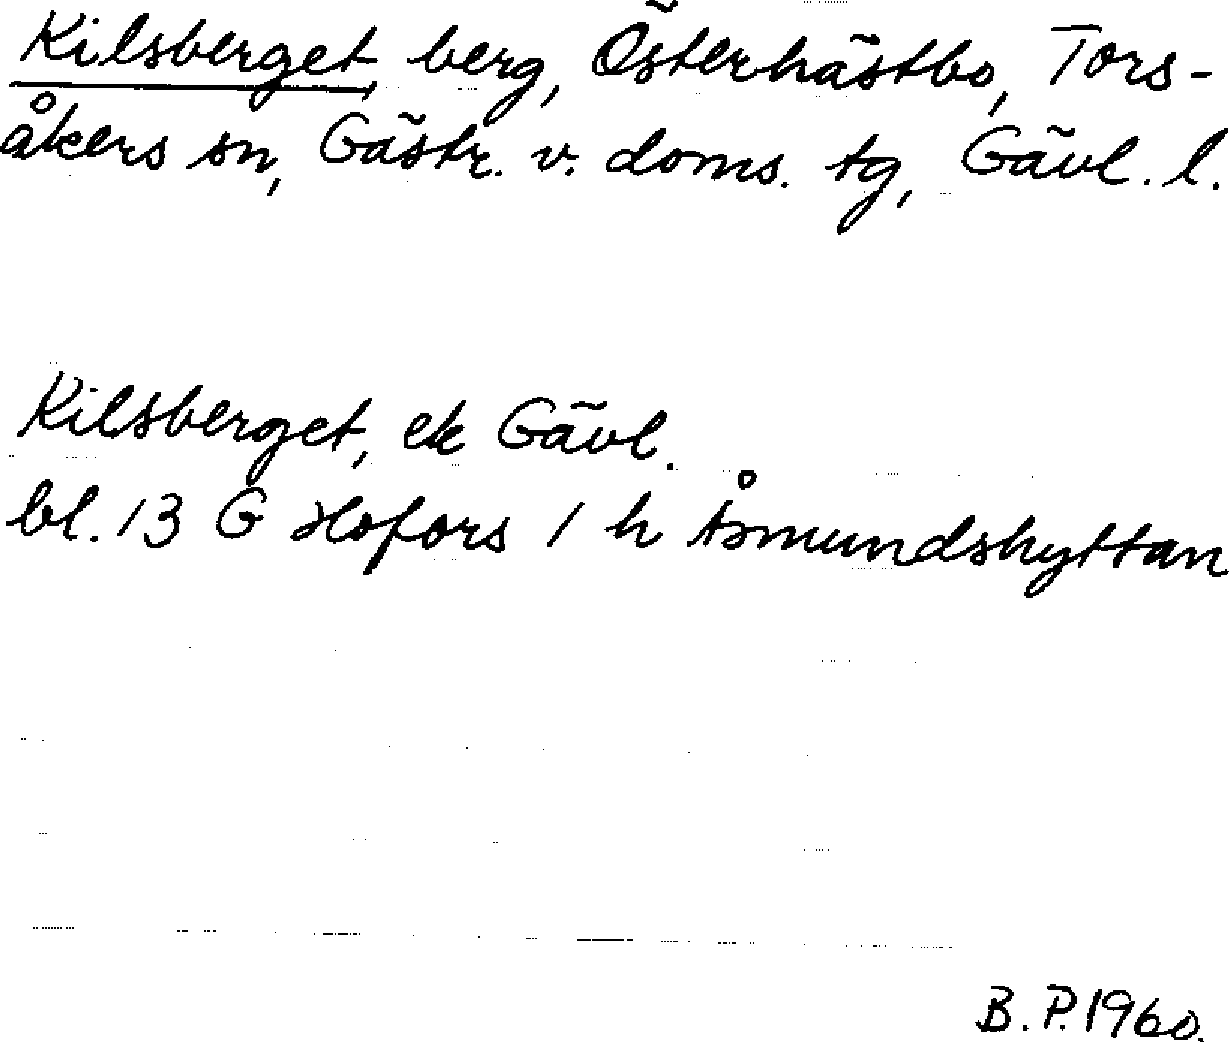 Kilsberget, berg, Österhästbo, Tors-
åkers sn, Gästr. v. doms. tg, Gävl. l.
Kilsberget, ek Gävl.
bl. 13 G Hofors 1 h Åsmundshyttan
B. P. 1960.